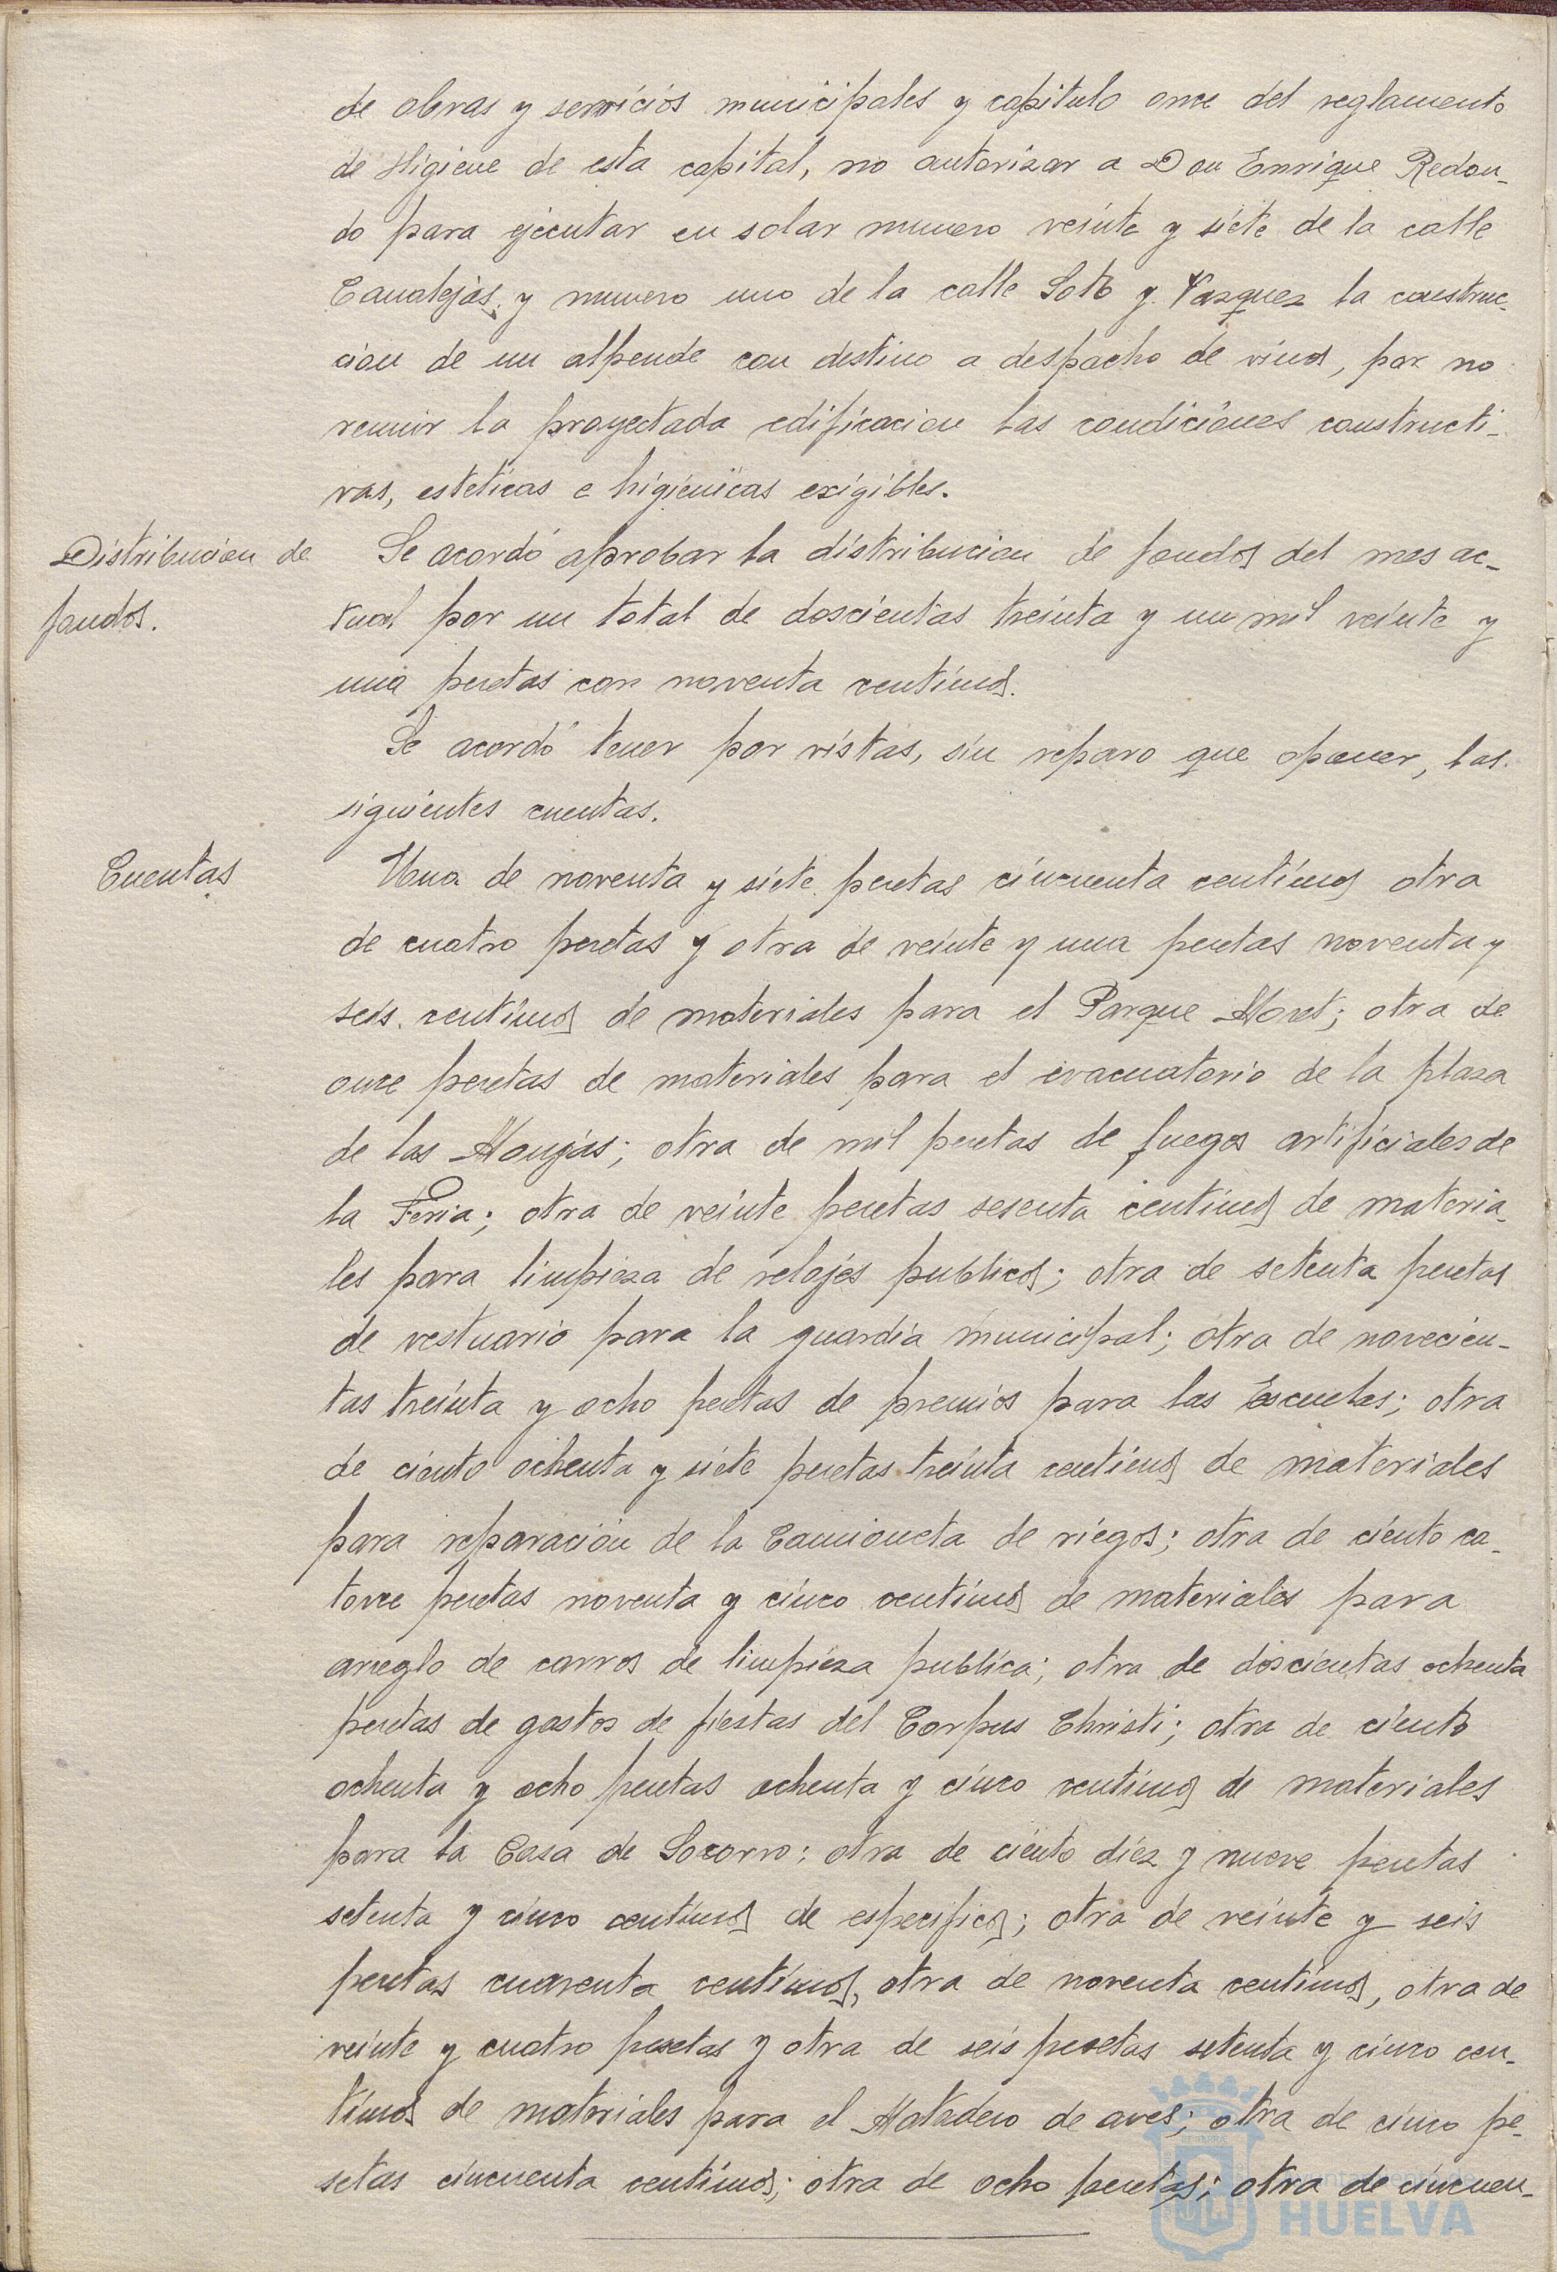 de obras y servicios municipales y capitulo once del reglamento
de Higiene de esta capital, no autorizar a Don Enrique Redon-
do para ejecutar en solar numero veinte y siete de la calle
Canalejas y numero uno de la calle Soto y Vazquez la construc-
cion de un alpende con destino a despacho de vinos, por no
reunir la proyectada edificacion las condiciones constructi-
vas, esteticas e higienicas exigibles.
Distribucion de
fondos.
Se acordó aprobar la distribucion de fondos del mes ac-
tual por un total de doscientas treinta y un mil veinte y
una pesetas con noventa centimos.
Se acordó tener por vistas, sin reparo que oponer, las
siguientes cuentas.
Cuentas
Una de noventa y siete pesetas cincuenta centimos otra
de cuatro pesetas y otra de veinte y una pesetas noventa y
seis centimos de materiales para el Parque Moret; otra de
once pesetas de materiales para el evacuatorio de la plaza
de las Monjas; otra de mil pesetas de fuegos artificiales de
la Feria; otra de veinte pesetas sesenta centimos de materia-
les para limpieza de relojes publicos; otra de setenta pesetas
de vestuario para la guardia municipal; otra de novecien-
tas treinta y ocho pesetas de premios para las Escuelas; otra
de ciento ochenta y siete pesetas treinta centimos de materiales
para reparacion de la Camioneta de riegos; otra de ciento ca-
torce pesetas noventa y cinco centimos de materiales para
arreglo de carros de limpieza publica; otra de doscientas ochenta
pesetas de gastos de fiestas del Corpus Christi; otra de ciento
ochenta y ocho pesetas ochenta y cinco centimos de materiales
para la Casa de Socorro; otra de ciento diez y nueve pesetas
setenta y cinco centimos de especificos; otra de veinte y seis
pesetas cuarenta centimos, otra de noventa centimos, otra de
veinte y cuatro pesetas y otra de seis pesetas setenta y cinco cen-
timos de materiales para el Matadero de aves; otra de cinco pe-
setas cincuenta centimos; otra de ocho pesetas; otra de cincuen-
HUELVA